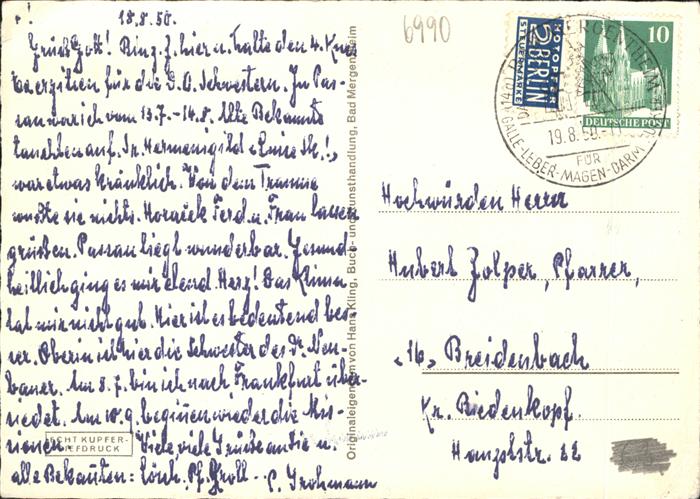 18.8.50.
Grüss Gott! Bin z. Z. hier u. halte den 4. Kurs
Exerzitien für die D.O. Schwestern. In Pas-
sau war ich vom 13.7.-14.8. Alte Bekannte
tauchten auf. Sr. Hermenigild
war etwas kränklich. Von dem
wusste sie nichts. Horaček Ferd. u. Frau lassen
grüssen. Passau liegt wunderbar. Gesund-
heitlich ging es mir elend. Herz! Das Klima
tat mir nicht gut. Hier ist es bedeutend bes-
ser. Oberin ist hier die Schwester des Dr. Neu-
bauer. Am 8.7. bin ich nach Frankfurt über-
siedelt. Am 10.9. beginnen wieder die Mis-
sionen. Viele viele Grüsse an Sie u.
alle Bekannten: Pf. P. Grohmann
ECHT KUPFER-
TIEFDRUCK
Originaleigentum von Hans Kling, Buch- und Kunsthandlung, Bad Mergentheim
6990
NOTOPFER
2 BERLIN
STEUERMARKE
10
DEUTSCHE POST
BAD MERGENTHEIM
19.8.50
FÜR
GALLE-LEBER-MAGEN-DARM
Hochwürden Herrn
Hubert Zolper, Pfarrer,
„16" Breidenbach
Kr. Biedenkopf.
Hauptstr. 22